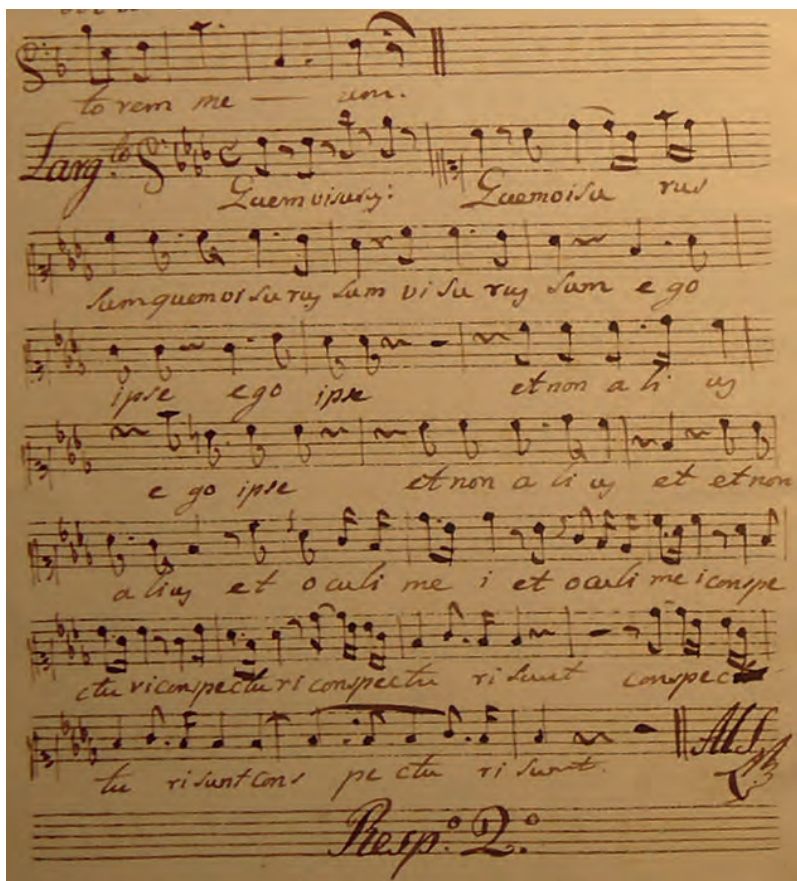 torem me — um.
Larg.to
Quem visurus: Quem visu rus
sum quem visurus sum vi su rus sum e go
ipse ego ipse et non a li us
e go ipse et non a li us et et non
a lius et o culi me i et o culi me i conspe
ctu ri conspectu ri conspectu ri sunt conspect
tu ri sunt cons pe ctu ri sunt.
Resp.o 2.o